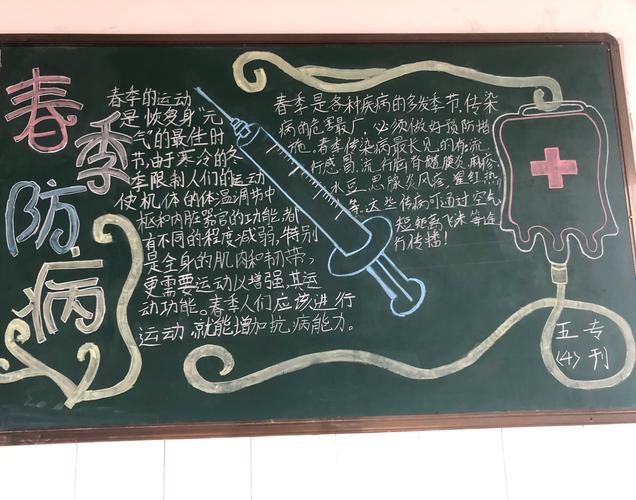 春季防病
春季的运动
是恢复身“元
气”的最佳时
节,由于寒冷的冬
季限制人们的运动
使机体的体温调节中
枢和内脏器官的功能,都
有不同的程度减弱,特别
是全身的肌肉和韧带,
更需要运动以增强其运
动功能。春季人们应该进行
运动,就能增加抗病能力。
春季是各种疾病的多发季节,传染
病的危害最广,必须做好预防措
施。春季传染病最长见的有流
行感冒、流行脑脊髓膜炎、麻疹、
水豆、腮腺炎、风疹、猩红热
等、这些传病可通过空气
短距离飞沫等途
行传播!
五专
(4)刊